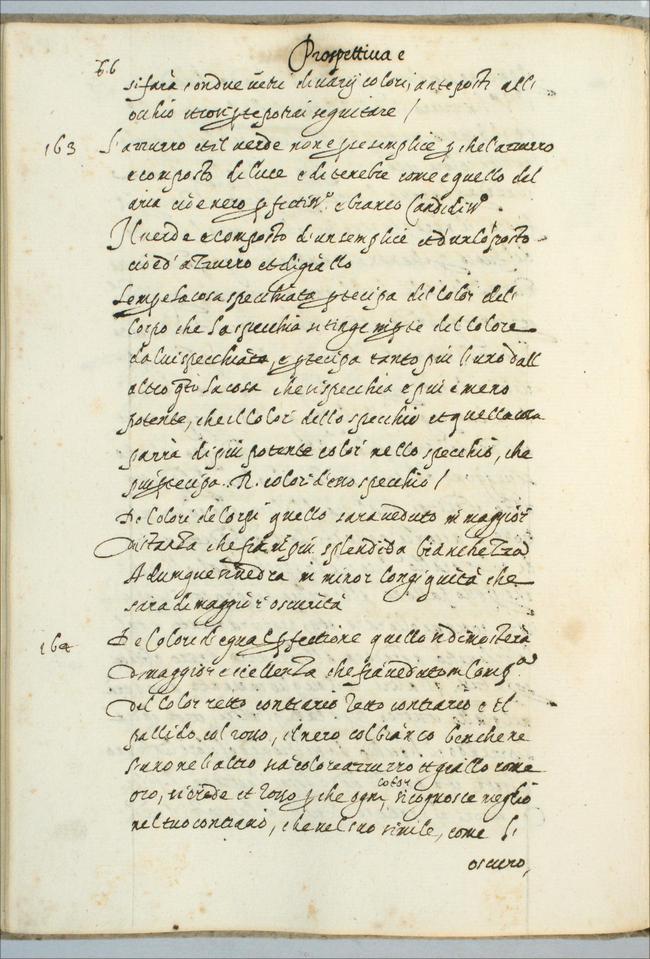 Prospettiua e
66
si farà con due uetri di uarij colori anteposti all'
occhio et con p te potrai seguitare /
163 L'azzurro et il uerde non è p se semplice p che l'azzurro
è composto di luce e di tenebre come è quello del
aria cioè nero p fettiss.º e bianco Candidiss.º
Il uerde è composto d'un semplice et d'un cóposto
cioè d'azzurro et di giallo
Sempe la cosa specchiata ptecipa del color del
Corpo che la specchia si tinge in pte del colore
da lui specchiato, e ptecipa tanto più l'uno dall
altro qto la cosa che si specchia è più è meno
potente, che il color dello specchio et quella cosa
parrà di più potente color nello specchio, che
più ptecipa color d'esso specchio /
De Colori de Corpi quello sarà ueduto in maggior
distanza che fia di più splendida bianchezza
Adunque si uedrà in minor longiquità che
sarà di maggior oscurità
164 De Colori d'egual pfettione quello si dimosterà
di maggior eccellenza che fia ueduto in Comp.ª
del Color retto contrario retto contrario è il
pallido col rosso, il nero col bianco benche ne
l'uno ne l'altro sia colore azzurro et giallo come
oro, uerde et rosso p che ogni color si cognosce meglio
nel suo contrario, che nel suo simile, come l'
oscuro,